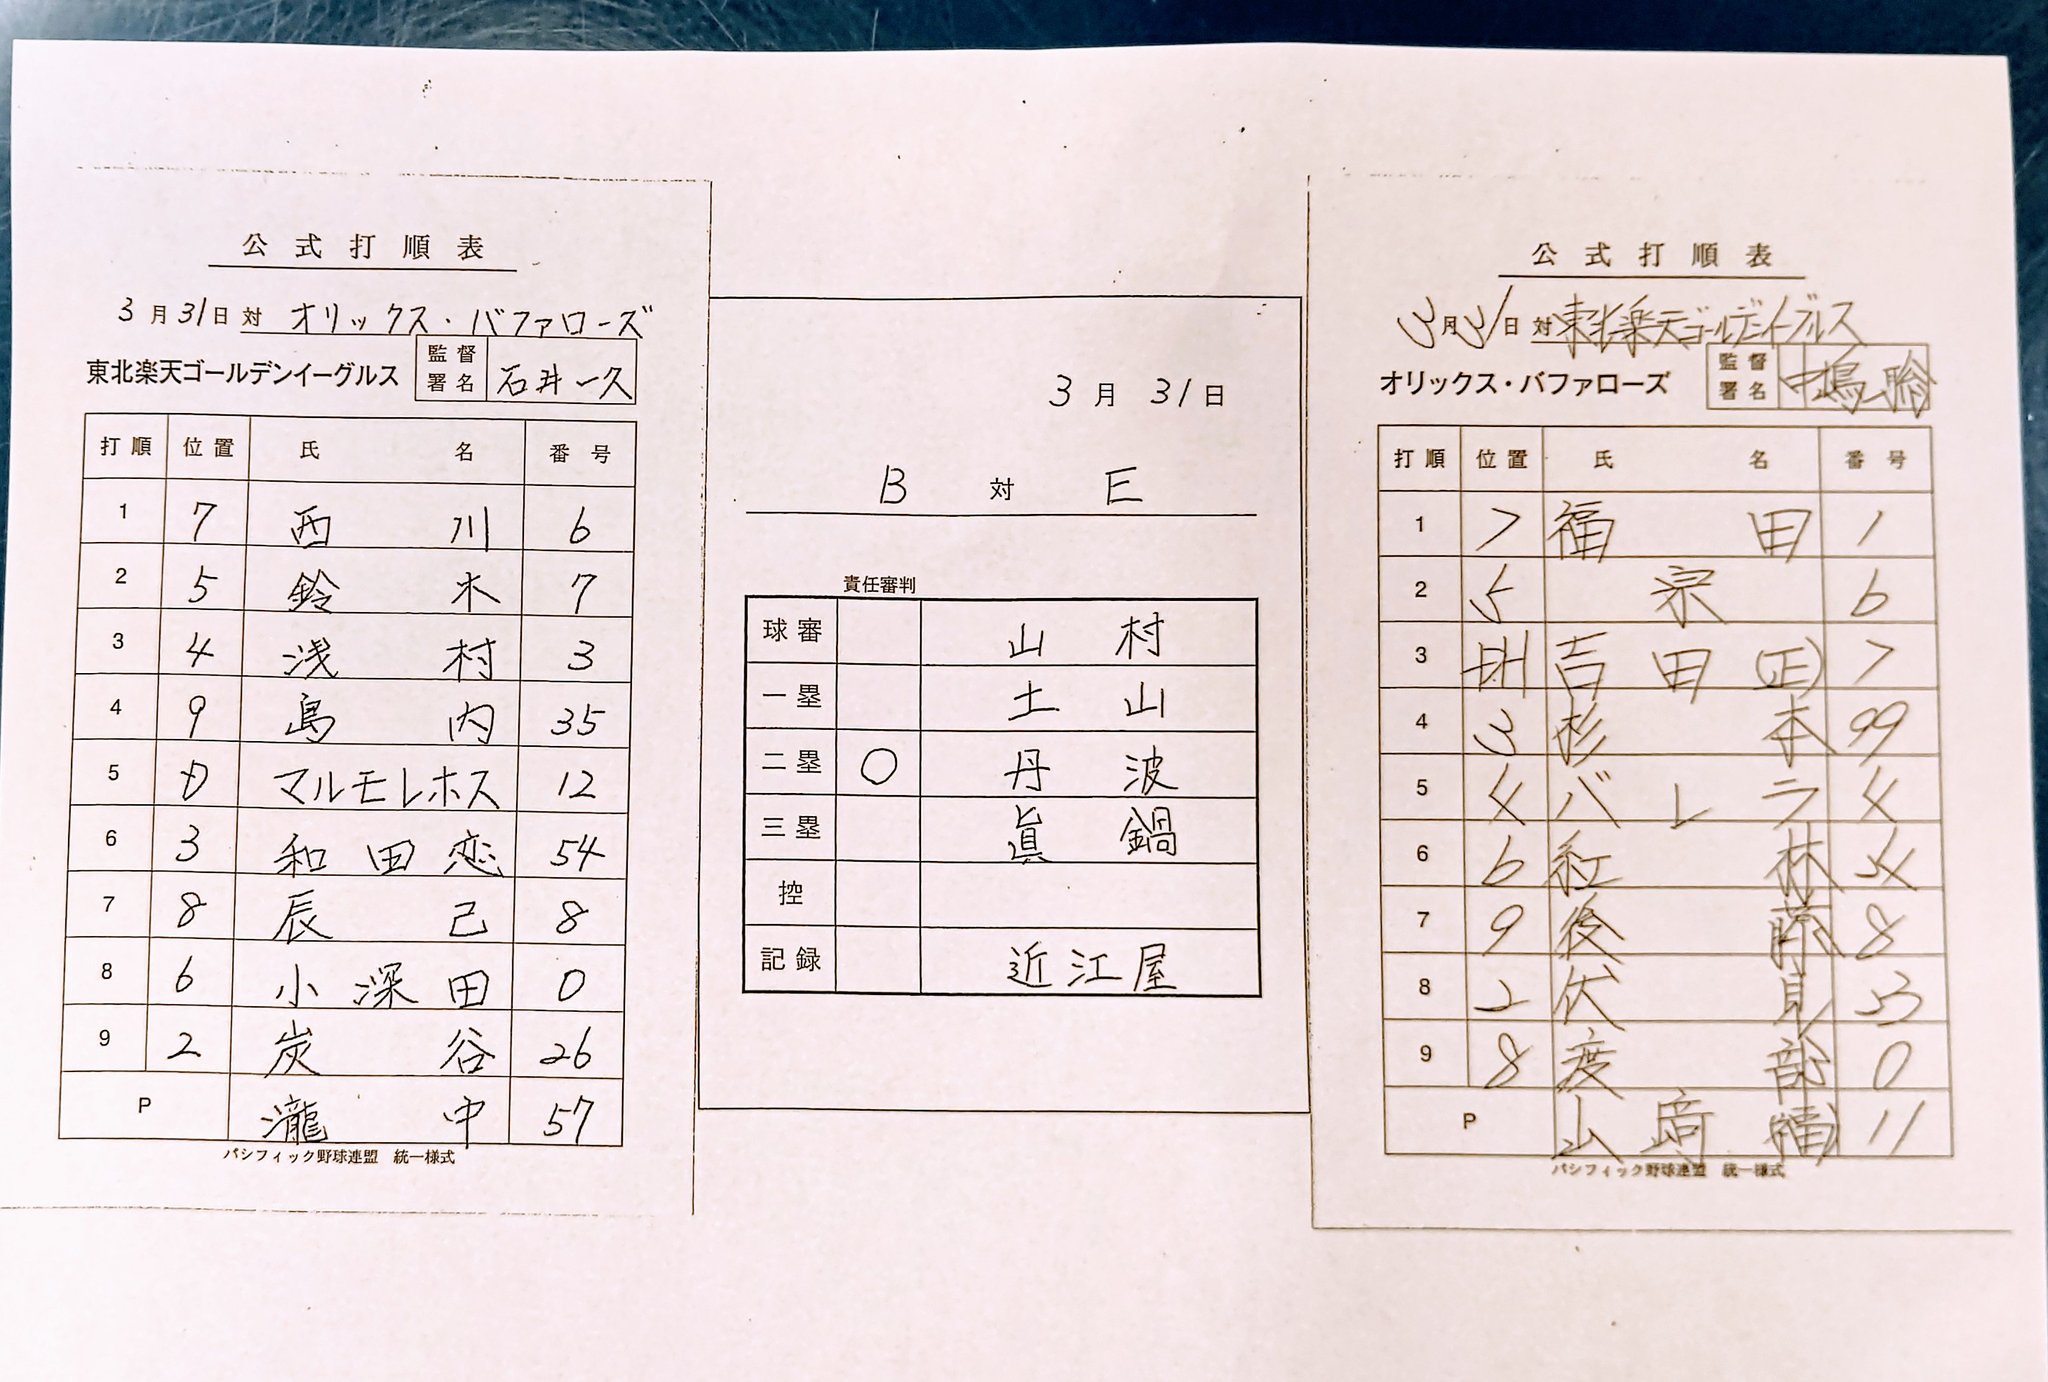 公式打順表
3月31日対 オリックス・バファローズ
東北楽天ゴールデンイーグルス 監督署名 石井一久
打順 位置 氏名 番号
1 7 西川 6
2 5 鈴木 7
3 4 浅村 3
4 9 島内 35
5 D マルモレホス 12
6 3 和田恋 54
7 8 辰己 8
8 6 小深田 0
9 2 炭谷 26
P 瀧中 57
パシフィック野球連盟 統一様式
3月31日
B 対 E
責任審判
球審 山村
一塁 土山
二塁 ○ 丹波
三塁 眞鍋
控
記録 近江屋
公式打順表
3月31日対 東北楽天ゴールデンイーグルス
オリックス・バファローズ 監督署名 中嶋聡
打順 位置 氏名 番号
1 7 福田 1
2 5 宗 6
3 DH 吉田(正) 7
4 3 杉本 99
5 4 バレラ 4
6 6 紅林 24
7 9 後藤 8
8 2 伏見 23
9 8 渡部 0
P 山﨑(福) 11
パシフィック野球連盟 統一様式